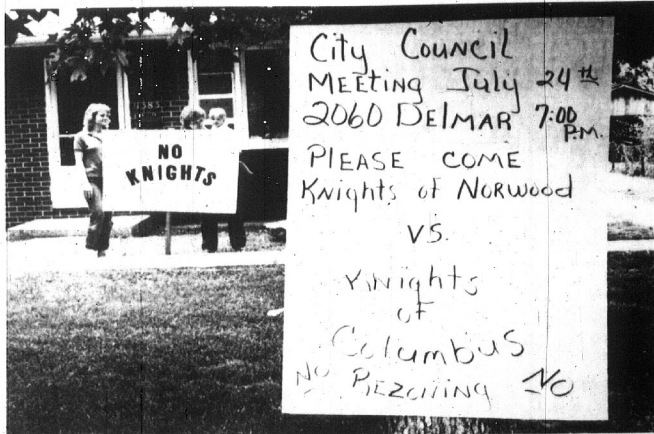 1383
NO
KNIGHTS
City Council
MEETING July 24th
2060 DElMAR 7:00 P.M.
PLEASE COME
Knights of NORWOOD
VS.
Knights
of
Columbus
NO REZONING NO